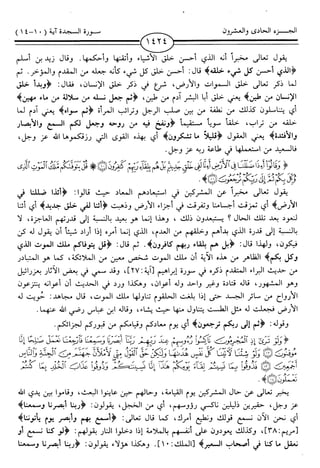 الجـــزء الحادى والعشـرون
١٤٢٤
ســورة السجدة آية (١٠-١٤)
يقول تعالى مخبراً أنه الذي أحسن خلق الأشياء وأتقنها وأحكمها. وقال زيد بن أسلم
﴿الذي أحسن كل شيء خلقه﴾ قال: أحسن خلق كل شيء كأنه جعله من المقدم والمؤخر. ثم
لما ذكر تعالى خلق السموات والأرض، شرع في ذكر خلق الإنسان، فقال: ﴿وبدأ خلق
الإنسان من طين﴾ يعني خلق أبا البشر آدم من طين، ﴿ثم جعل نسله من سلالة من ماء مهين﴾
أي يتناسلون كذلك من نطفة من بين صلب الرجل وترائب المرأة ﴿ثم سواه﴾ يعني آدم لما
خلقه من تراب، خلقاً سوياً مستقيماً ﴿ونفخ فيه من روحه وجعل لكم السمع والأبصار
والأفئدة﴾ يعني العقول ﴿قليلاً ما تشكرون﴾ أي بهذه القوى التي رزقكموها الله عز وجل،
فالسعيد من استعملها في طاعة ربه عز وجل.
﴿وَقَالُوٓا۟ أَءِذَا ضَلَلْنَا فِى ٱلْأَرْضِ أَءِنَّا لَفِى خَلْقٍ جَدِيدٍۭ بَلْ هُم بِلِقَآءِ رَبِّهِمْ كَـٰفِرُونَ ۝ قُلْ يَتَوَفَّىٰكُم مَّلَكُ ٱلْمَوْتِ ٱلَّذِى
وُكِّلَ بِكُمْ ثُمَّ إِلَىٰ رَبِّكُمْ تُرْجَعُونَ ۝﴾
يقول تعالى مخبراً عن المشركين في استبعادهم المعاد حيث قالوا: ﴿أئذا ضللنا في
الأرض﴾ أي تمزقت أجسامنا وتفرقت في أجزاء الأرض وذهبت ﴿أئنا لفي خلق جديد﴾ أي أئنا
لنعود بعد تلك الحال؟ يستبعدون ذلك ، وهذا إنما هو بعيد بالنسبة إلى قدرتهم العاجزة، لا
بالنسبة إلى قدرة الذي بدأهم وخلقهم من العدم، الذي إنما أمره إذا أراد شيئاً أن يقول له كن
فيكون، ولهذا قال: ﴿بل هم بلقاء ربهم كافرون﴾. ثم قال: ﴿قل يتوفاكم ملك الموت الذي
وكل بكم﴾ الظاهر من هذه الآية أن ملك الموت شخص معين من الملائكة، كما هو المتبادر
من حديث البراء المتقدم ذكره في سورة إبراهيم [آية: ٢٧]، وقد سمي في بعض الآثار بعزرائيل
وهو المشهور، قاله قتادة وغير واحد وله أعوان، وهكذا ورد في الحديث أن أعوانه ينتزعون
الأرواح من سائر الجسد حتى إذا بلغت الحلقوم تناولها ملك الموت، قال مجاهد: حُويت له
الأرض فجعلت له مثل الطست يتناول منها حيث يشاء، وقاله ابن عباس رضي الله عنهما.
وقوله: ﴿ثم إلى ربكم ترجعون﴾ أي يوم معادكم وقيامكم من قبوركم لجزائكم.
﴿وَلَوْ تَرَىٰٓ إِذِ ٱلْمُجْرِمُونَ نَاكِسُوا۟ رُءُوسِهِمْ عِندَ رَبِّهِمْ رَبَّنَآ أَبْصَرْنَا وَسَمِعْنَا فَٱرْجِعْنَا نَعْمَلْ صَـٰلِحًا إِنَّا
مُوقِنُونَ ۝ وَلَوْ شِئْنَا لَـَٔاتَيْنَا كُلَّ نَفْسٍ هُدَىٰهَا وَلَـٰكِنْ حَقَّ ٱلْقَوْلُ مِنِّى لَأَمْلَأَنَّ جَهَنَّمَ مِنَ ٱلْجِنَّةِ وَٱلنَّاسِ
أَجْمَعِينَ ۝ فَذُوقُوا۟ بِمَا نَسِيتُمْ لِقَآءَ يَوْمِكُمْ هَـٰذَآ إِنَّا نَسِينَـٰكُمْ وَذُوقُوا۟ عَذَابَ ٱلْخُلْدِ بِمَا كُنتُمْ
تَعْمَلُونَ ۝﴾
يخبر تعالى عن حال المشركين يوم القيامة، وحالهم حين عاينوا البعث، وقاموا بين يدي الله
عز وجل، حقيرين ذليلين ناكسي رؤوسهم، أي من الخجل، يقولون: ﴿ربنا أبصرنا وسمعنا﴾
أي نحن الآن نسمع قولك ونطيع أمرك، كما قال تعالى: ﴿أسمع بهم وأبصر يوم يأتوننا﴾
[مريم: ٣٨]، وكذلك يعودون على أنفسهم بالملامة إذا دخلوا النار بقولهم: ﴿لو كنا نسمع أو
نعقل ما كنا في أصحاب السعير﴾ [الملك: ١٠]. وهكذا هؤلاء يقولون: ﴿ربنا أبصرنا وسمعنا